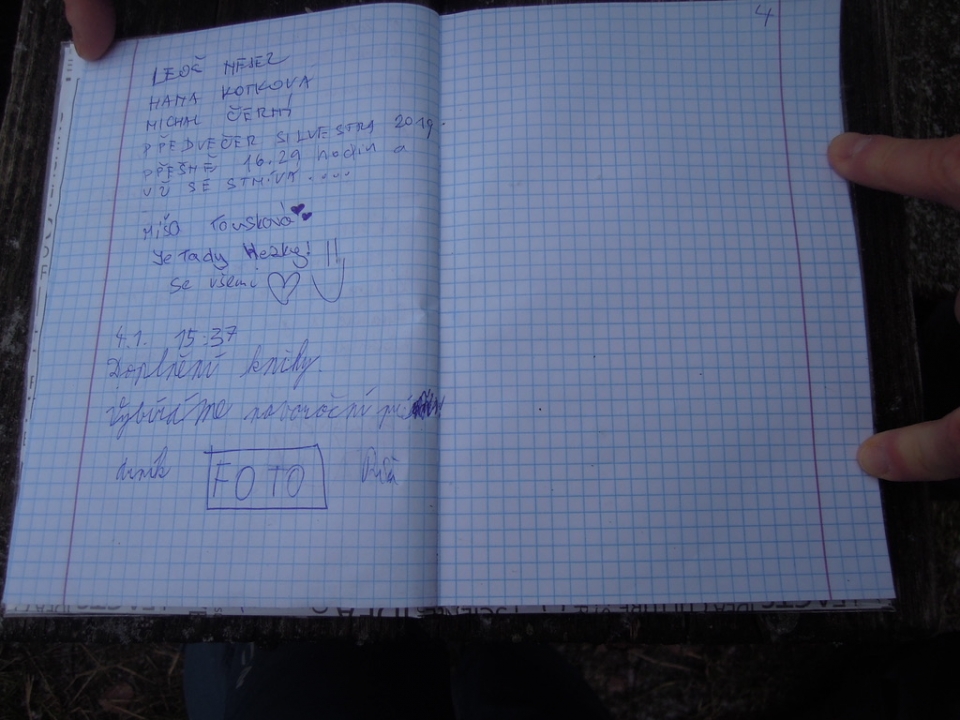 4
HANA KOTKOVA
MICHAL ČERNÝ
PŘEDVEČER SILVESTRA 2019.
PŘESNĚ 16.29 hodin a
UŽ SE STMÍVÁ....
MÍŠA Toušková
Je Tady Hezky! !!
Se všemi
4.1. 15:37
Doplnění knihy.
Vybíráme novoroční
FOTO